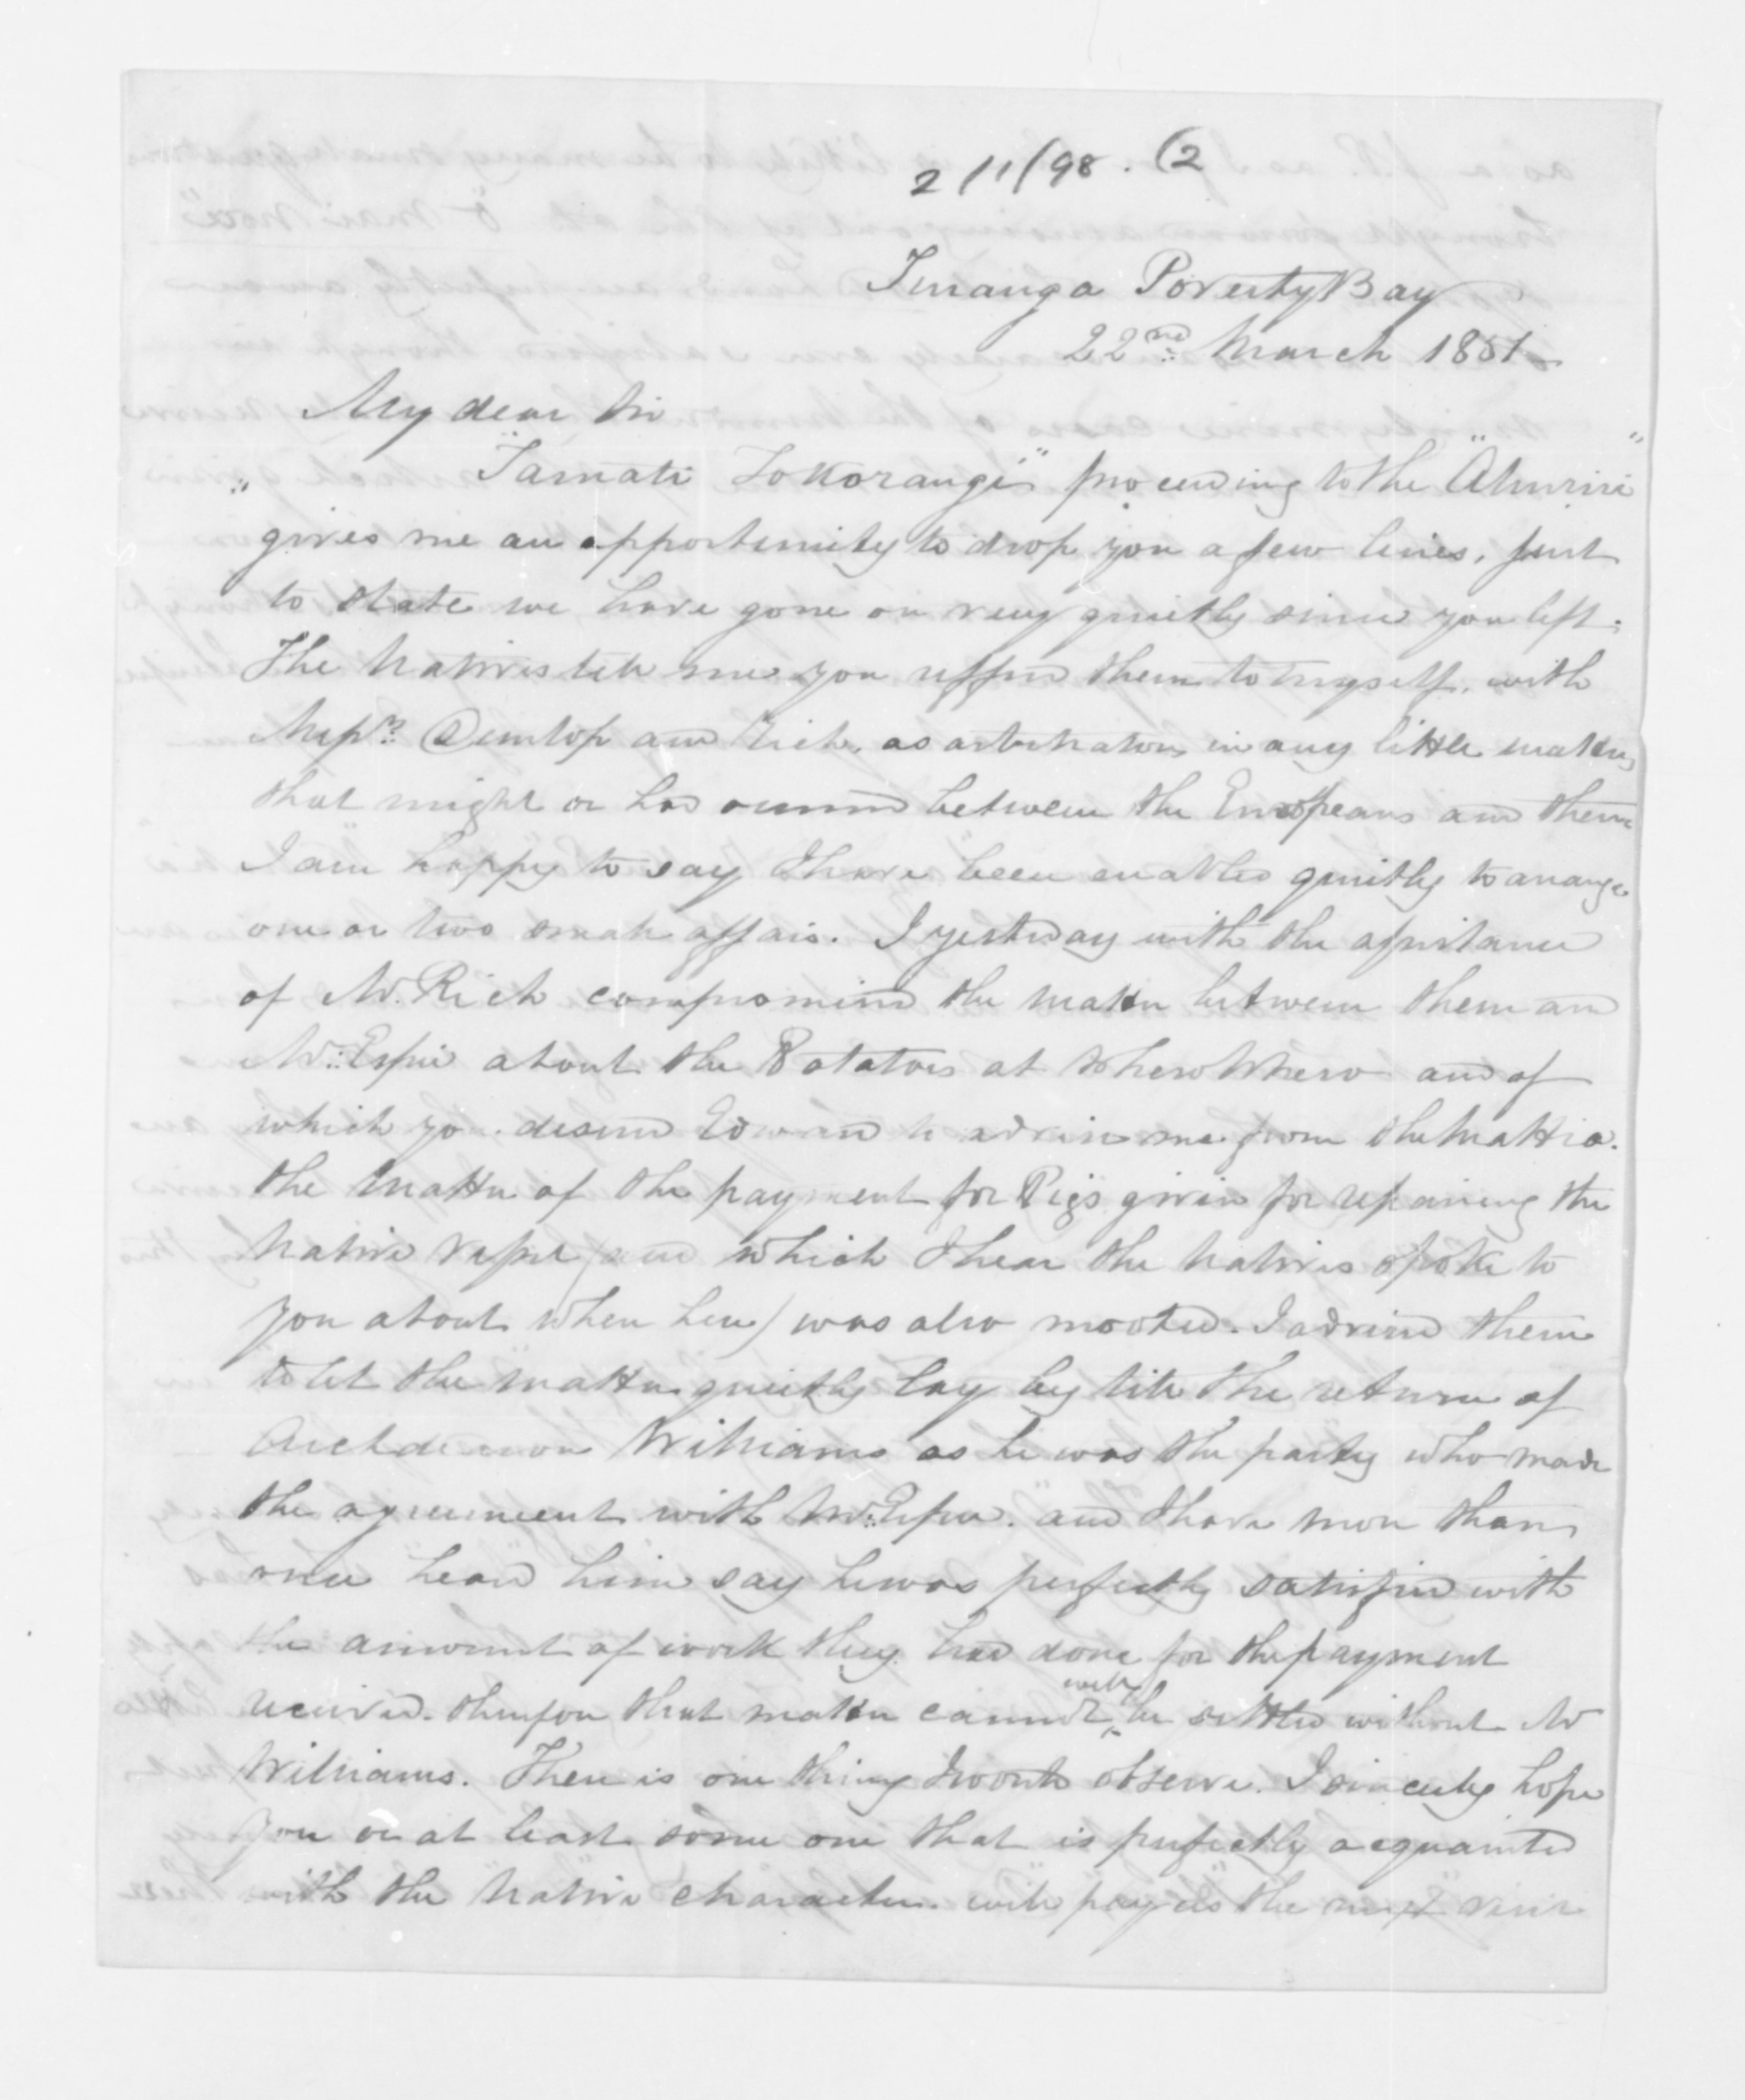 2/1/98. (2
Turanga Poverty Bay
22nd March 1851
My dear Sir
"Tamati Tokorangi" proceeding to the "Ahuriri"
gives me an opportunity to drop you a few lines, just
to state we have gone on very quietly since you left.
The Natives tell me you refferd them to myself, with
Messrs. Dunlop and Rich, as arbitrators in any little matters
that might or had occurred between the Europeans and them
I am happy to say I have been enabled quietly to arrange
one or two small affairs. I yesterday with the assistance
of Mr. Rich compromised the matter between them and
Mr. Espie about the Potatoes at WheroWhero and of
which you desired Edward to advise me from
the matter of the payment for Pigs given for repairing the
Native vessel (and which I hear the Natives spoke to
you about when here) was also mooted. I advised them
to let the matter quietly lay by till the return of
Archdeacon Williams as he was the party who made
the agreement with Mr. Espie. and I have more than
once heard him say he was perfectly satisfied with
the amount of work they had done for the payment
received. therefore that matter cannot well be settled without Mr
Williams. There is one thing I would observe. I sincerely hope
you or at least some one that is perfectly acquainted
with the Native character. will pay us the next visit